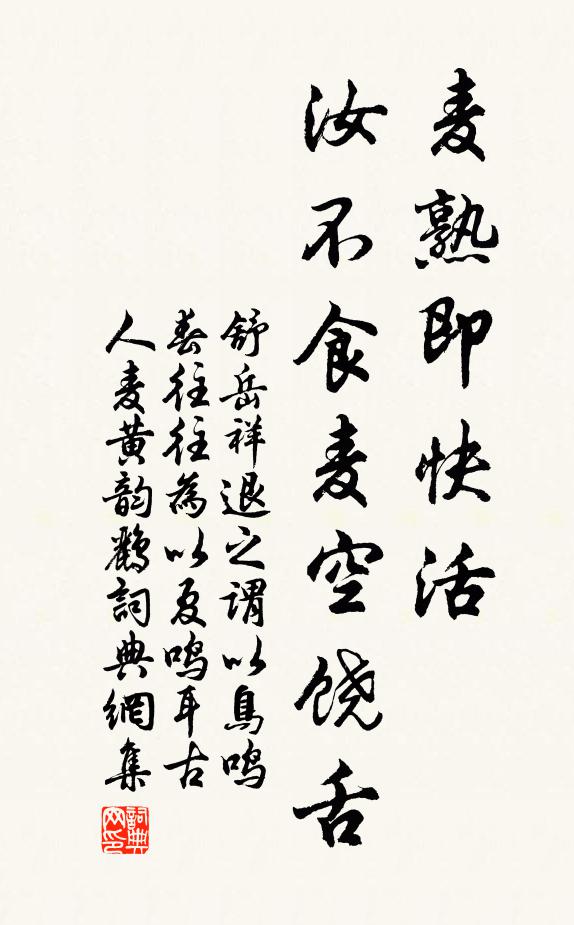 麦熟即快活
汝不食麦空饶舌
舒岳祥退之谓以鳥鸣
春往往為以夏鸣耳古
人麦黄韵鹳詞典網集
詞典
网印